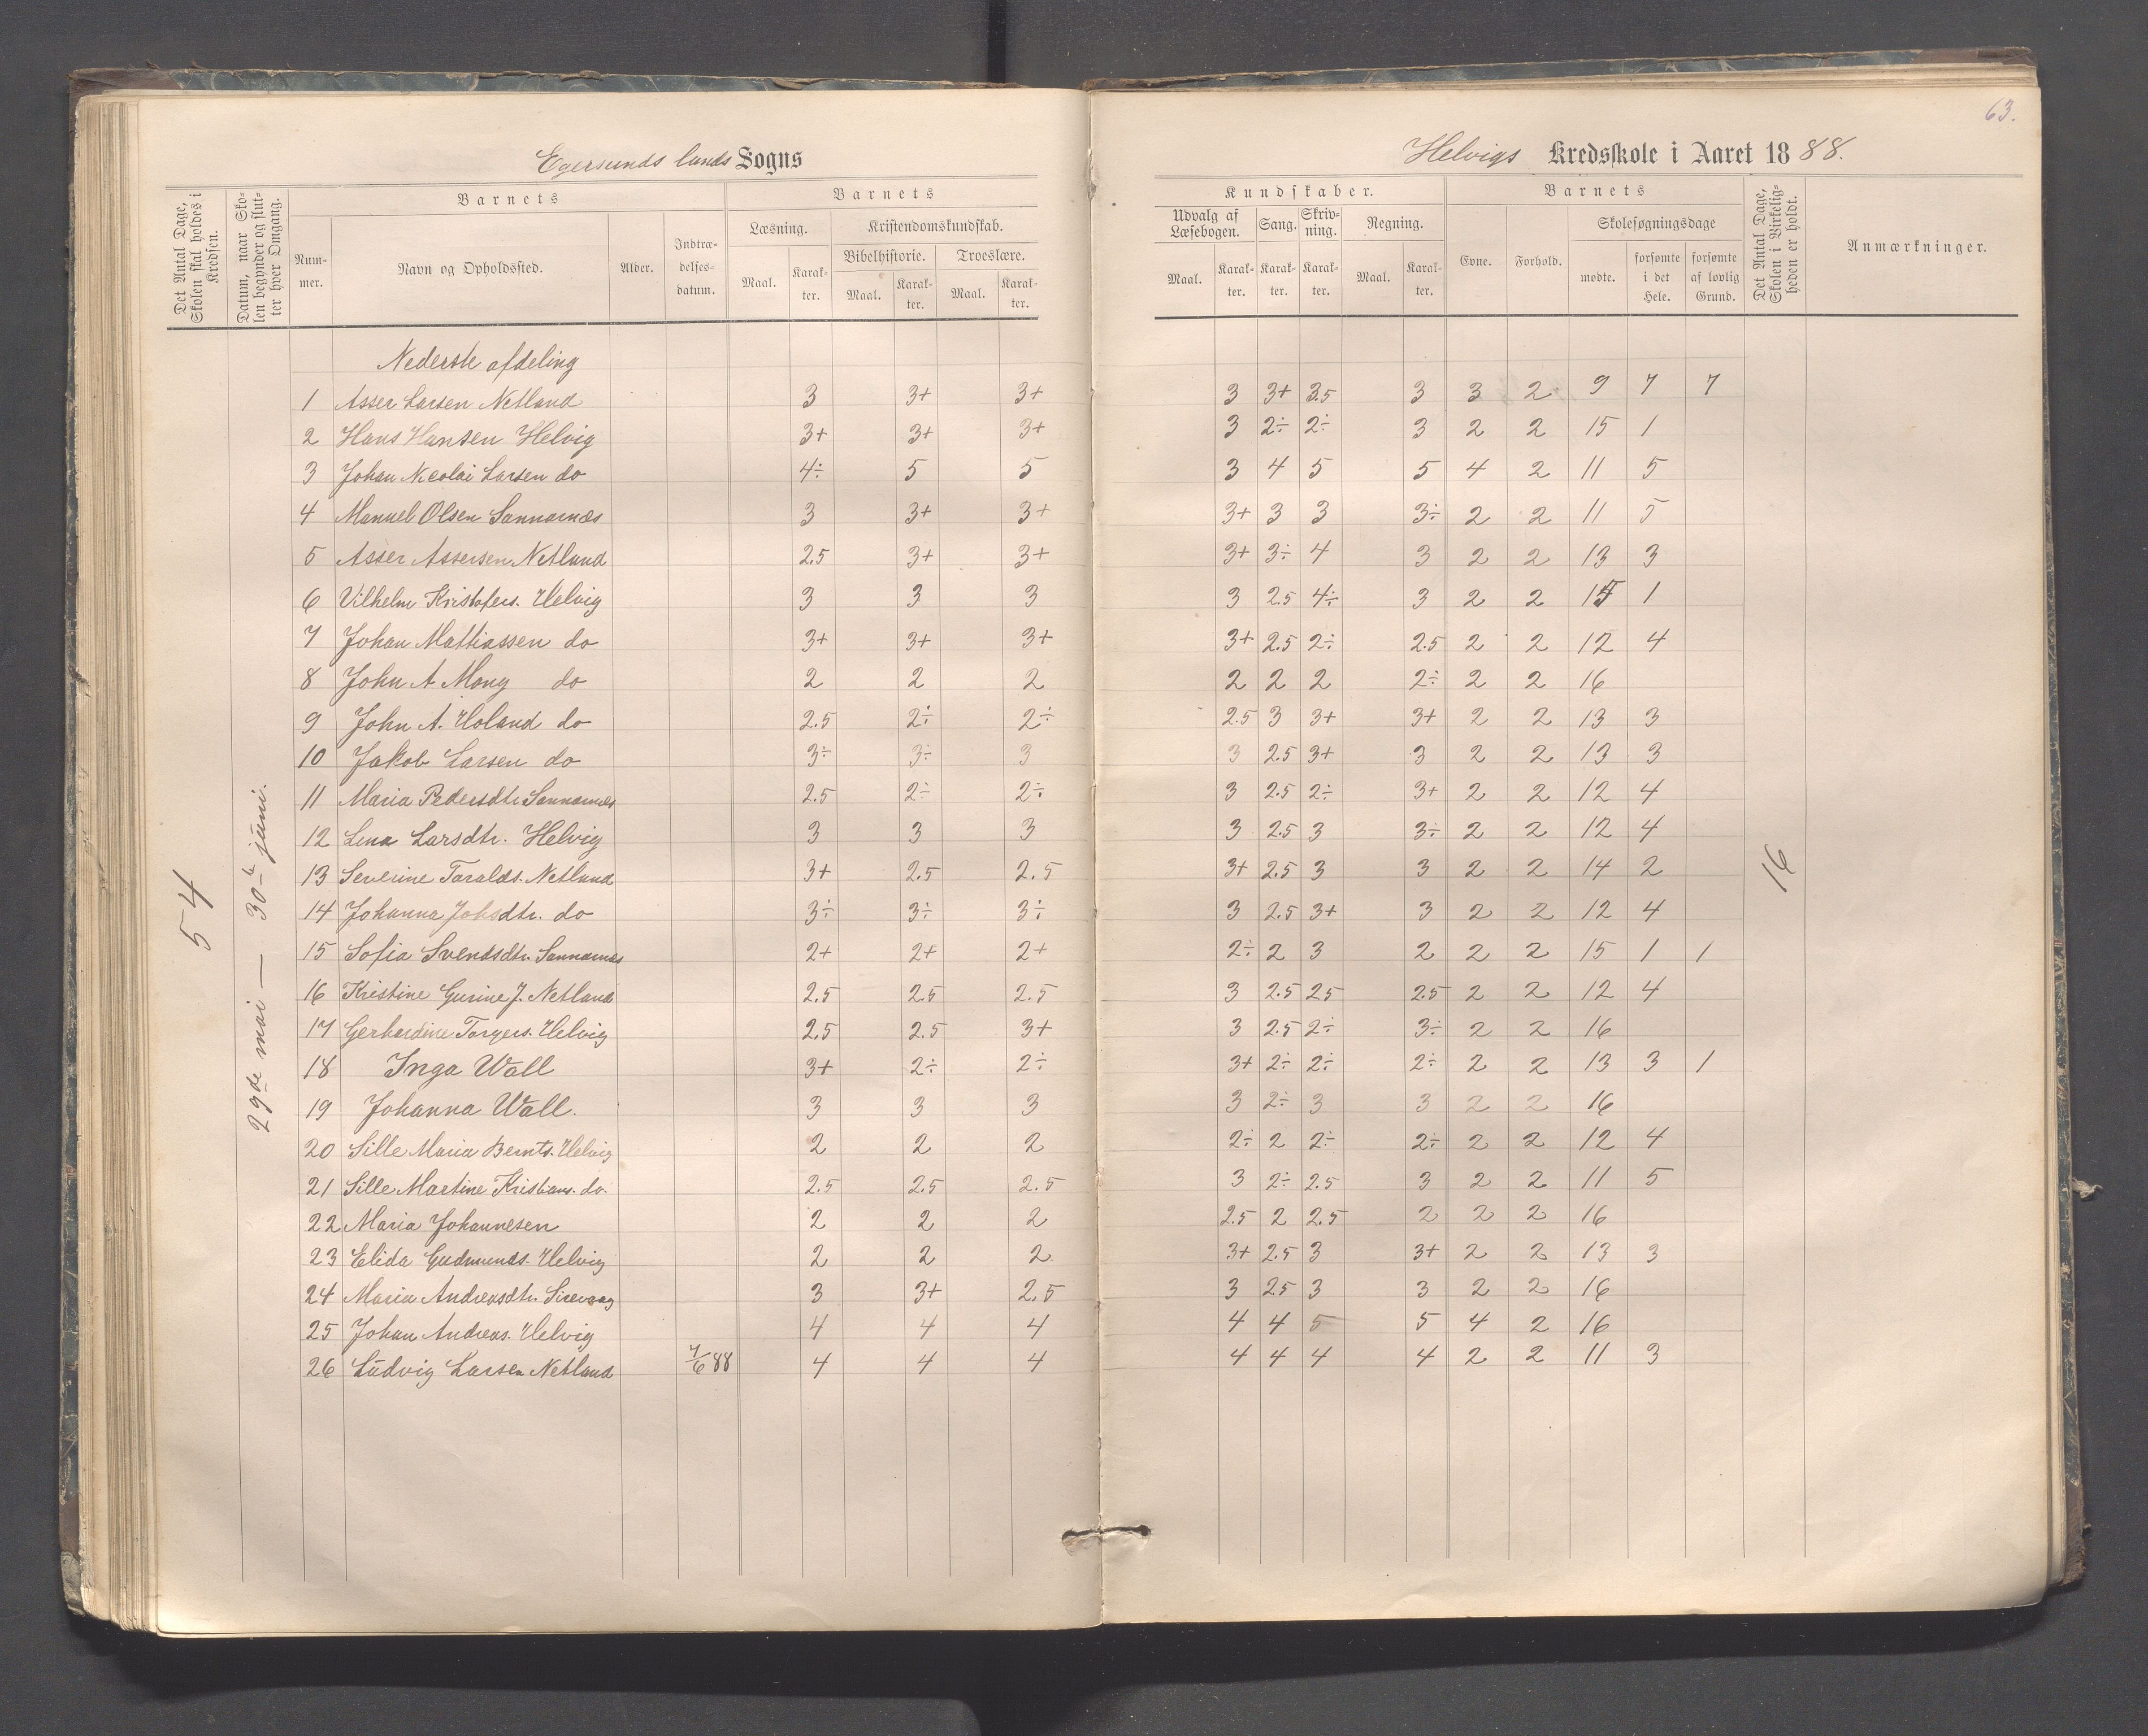 63.
Egersunds lands Sogns
Helvigs Kredsskole i Aaret 1888.
Det Antal Dage, Skolen skal holdes i Kredsen.
Datum, naar Skolen begynder og slutter hver Omgang.
Barnets
Nummer.
Navn og Opholdssted.
Alder.
Indtrædelsesdatum.
Barnets
Læsning.
Maal.
Karakter.
Kristendomskundskab.
Bibelhistorie.
Maal.
Karakter.
Troeslære.
Maal.
Karakter.
Kundskaber.
Udvalg af Læsebogen.
Maal.
Karakter.
Sang.
Karakter.
Skrivning.
Karakter.
Regning.
Maal.
Karakter.
Barnets
Evne.
Forhold.
Skolesøgningsdage
mødte.
forsømte i det Hele.
forsømte af lovlig Grund.
Det Antal Dage, Skolen i Virkeligheden er holdt.
Anmærkninger.
54
29de mai — 30te juni.
16
Nederste afdeling
1 Asser Larsen Netland 3 3+ 3+ 3 3+ 3.5 3 3 2 9 7 7
2 Hans Hansen Helvig 3+ 3+ 3+ 3 2÷ 2÷ 3 2 2 15 1
3 Johan Nicolai Larsen do 4÷ 5 5 3 4 5 5 4 2 11 5
4 Manuel Olsen Sannarnæs 3 3+ 3+ 3+ 3 3 3÷ 2 2 11 5
5 Asser Assersen Netland 2.5 3+ 3+ 3+ 3÷ 4 3 2 2 13 3
6 Vilhelm Kristofers. Helvig 3 3 3 3 2.5 4÷ 3 2 2 15 1
7 Johan Mathiassen do 3+ 3+ 3+ 3+ 2.5 2÷ 2.5 2 2 12 4
8 John A Mong do 2 2 2 2 2 2 2÷ 2 2 16
9 John A. Holand do 2.5 2÷ 2÷ 2.5 3 3+ 3+ 2 2 13 3
10 Jakob Larsen do 3÷ 3÷ 3 3 2.5 3+ 3 2 2 13 3
11 Maria Pedersdtr. Sannarnæs 2.5 2÷ 2÷ 3 2.5 2÷ 3+ 2 2 12 4
12 Lena Larsdtr. Helvig 3 3 3 3 2.5 3 3÷ 2 2 12 4
13 Severine Taralds. Netland 3+ 2.5 2.5 3+ 2.5 3 3 2 2 14 2
14 Johanna Johsdtr. do 3÷ 3÷ 3÷ 3 2.5 3+ 3 2 2 12 4
15 Sofia Svendsdtr. Sannarnæs 2+ 2+ 2+ 2÷ 2 3 2 2 2 15 1 1
16 Kristine Gurine J. Netland 2.5 2.5 2.5 3 2.5 25 2.5 2 2 12 4
17 Gerhardine Torgers. Helvig 2.5 2.5 3+ 3 2.5 2÷ 3÷ 2 2 16
18 Inga Wall 3+ 2÷ 2÷ 3+ 2÷ 2÷ 2÷ 2 2 13 3 1
19 Johanna Wall. 3 3 3 3 2÷ 3 3 2 2 16
20 Sille Maria Bernts. Helvig 2 2 2 2÷ 2 2÷ 2÷ 2 2 12 4
21 Sille Martine Kristians. do. 2.5 2.5 2.5 3 2÷ 2.5 3 2 2 11 5
22 Maria Johannesen 2 2 2 2.5 2 2.5 2 2 2 16
23 Elida Gudmunds. Helvig 2 2 2 3+ 2.5 3 3+ 2 2 13 3
24 Maria Andreasdtr. Sirevaag 3 3+ 2.5 3 2.5 3 3 2 2 16
25 Johan Andreas. Helvig 4 4 4 4 4 5 5 4 2 16
26 Ludvig Larsen Netland 7/6 88 4 4 4 4 4 4 4 2 2 11 3